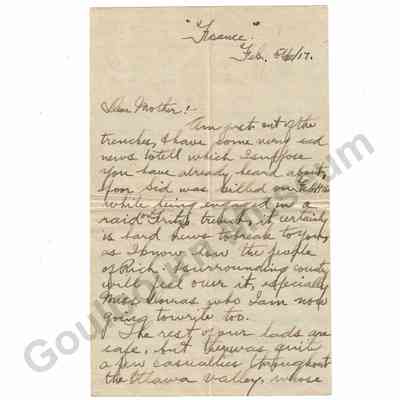 "France"
Feb. /17.
Dear Mother! -
Am just out of the
trenches, & have some very sad
news to tell which I suppose
you have already heard about,
Poor Sid was killed on Feb
while being engaged in a
raid Fritz trench, it certainly
is hard news to break to you
as I know how the people
of Rich. & surrounding country
will feel over it, especially
Miss who I am now
going to write too.
The rest of our lads are
safe, but there was quite
a few casualties throughout
the Ottawa Valley, whose
Goulbourn Museum